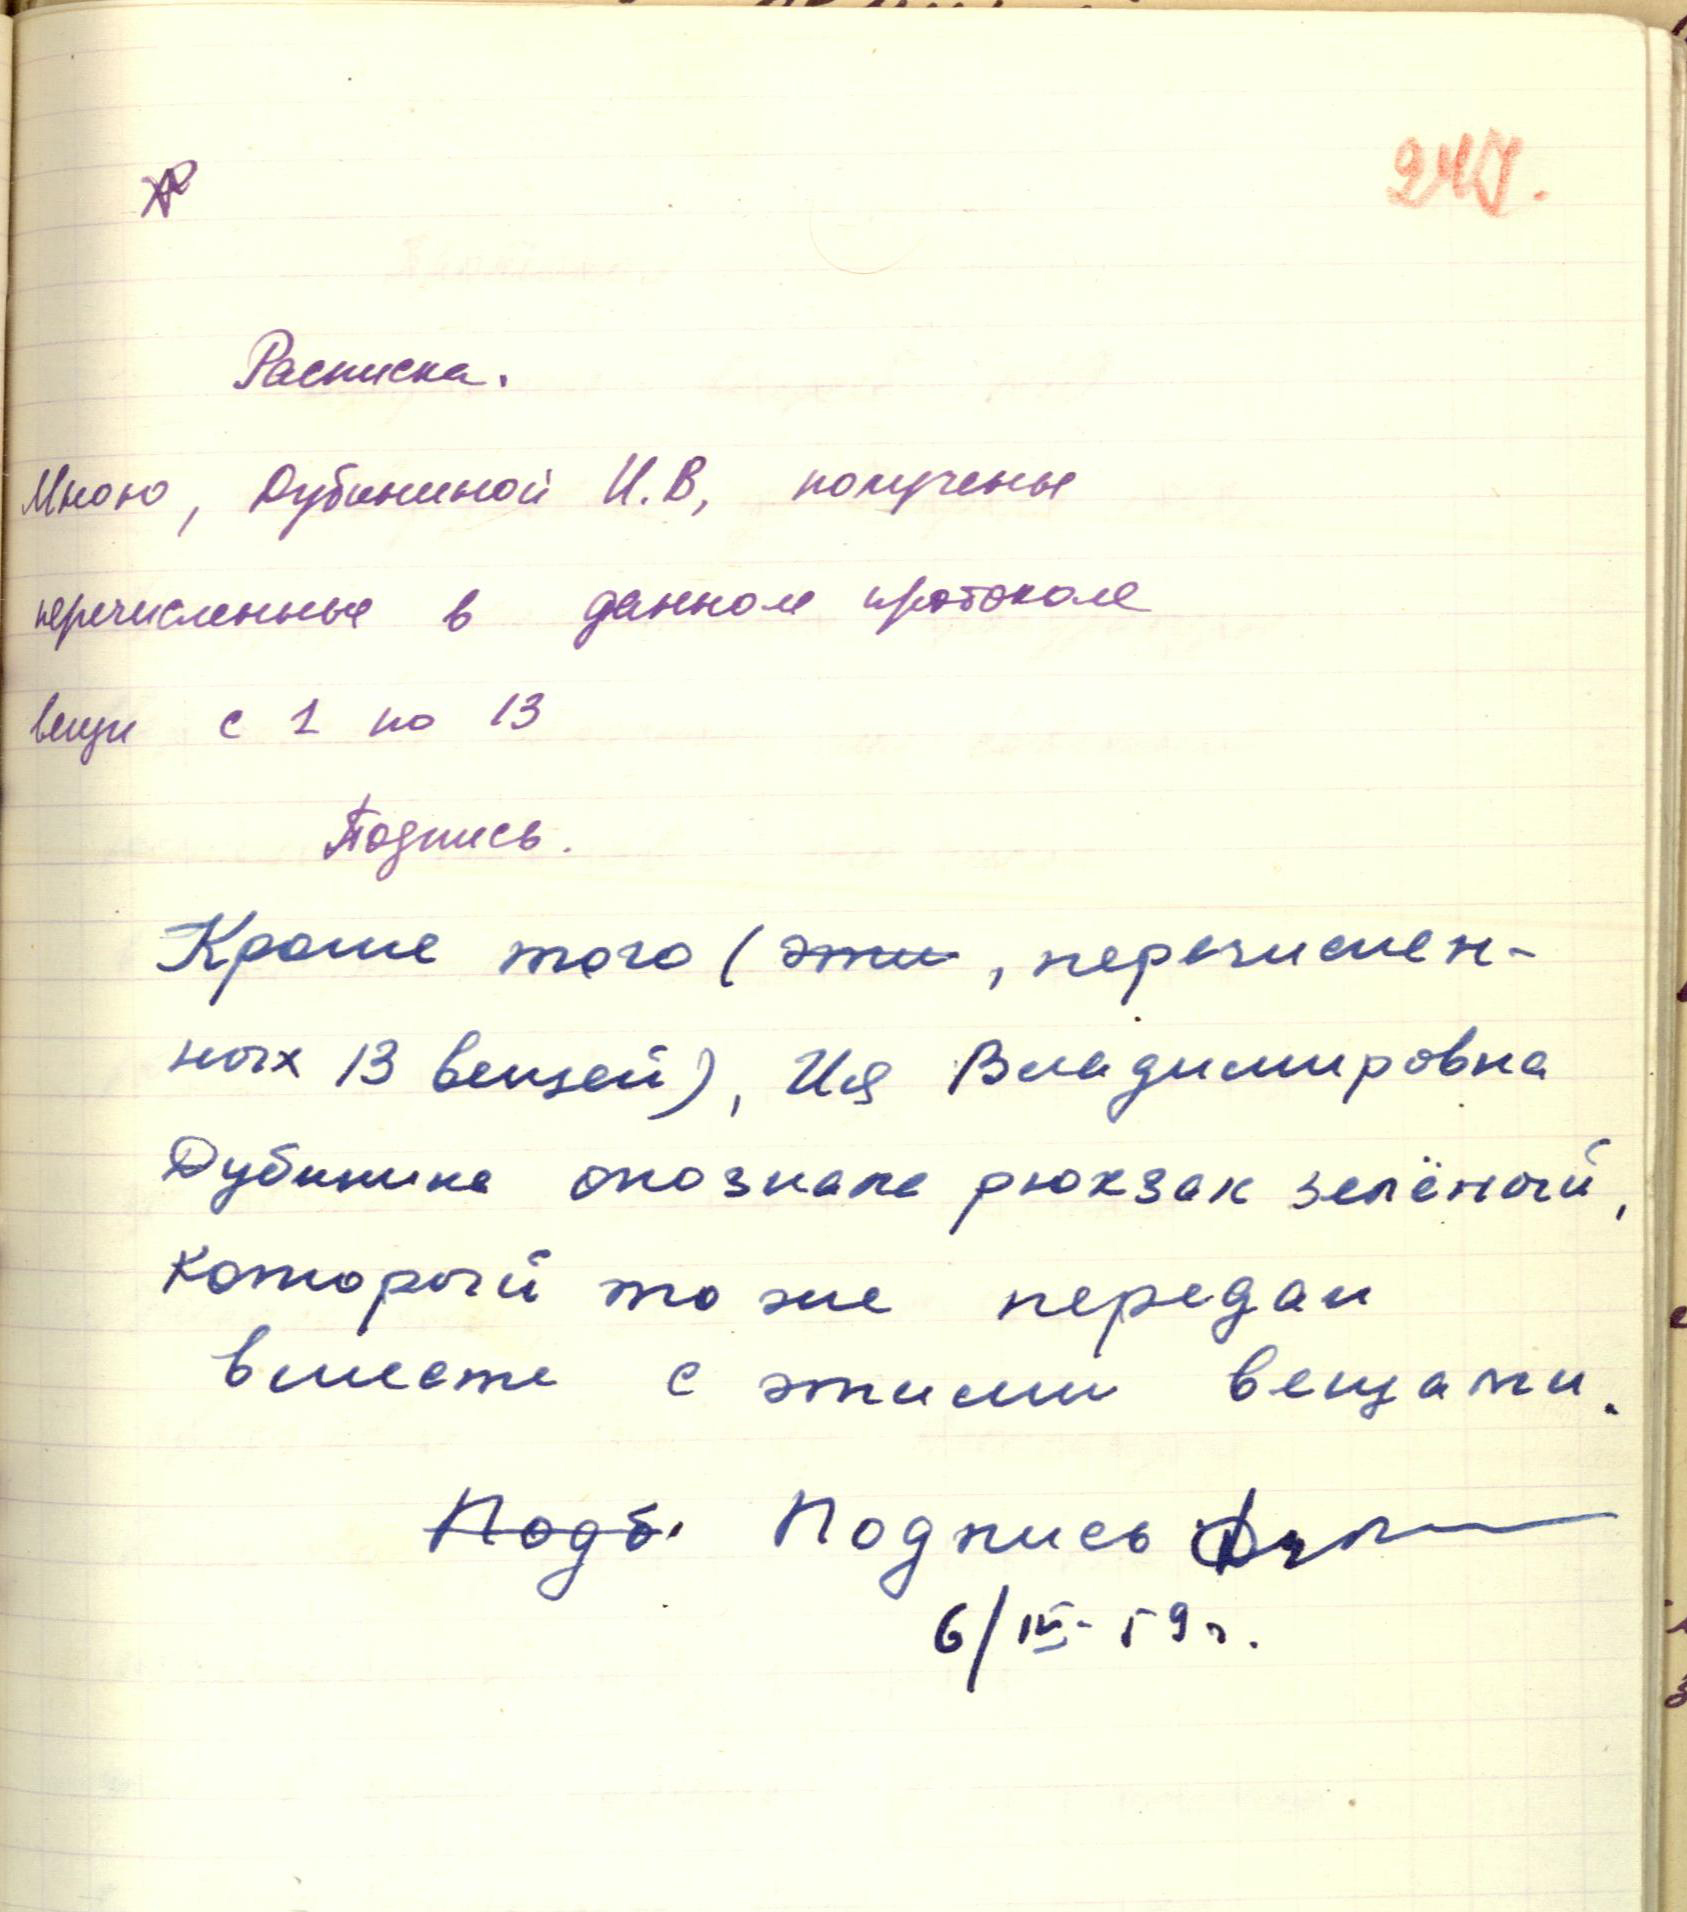 247.
Расписка.
Мною, Дубининой И.В, полученые
перечисленные в данном протоколе
вещи с 1 по 13
Подпись.
Кроме того ( эти , перечислен-
ных 13 вещей), Ия Владимировна
Дубинина опознала рюкзак зелёный,
который то же передан
вместе с этими вещами.
Подб. Подпись
6/IV-59г.